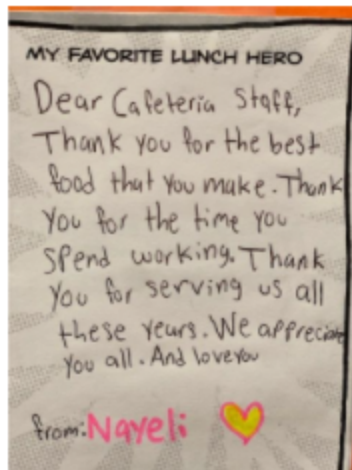 MY FAVORITE LUNCH HERO
Dear Cafeteria Staff,
Thank you for the best
food that you make. Thank
you for the time you
spend working. Thank
you for serving us all
these years. We appreciate
you all. And love you
from: Nayeli